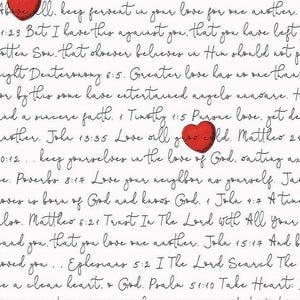 Above all, keep fervent in your love for one another.
1:23 But I have this against you, that you have left
otten Son, that whoever believes in Him should not p
ight Deuteronomy 6:5. Greater love has no one than
or by this some have entertained angels unaware. H
nd a sincere faith. 1 Timothy 1:5 Pursue love, yet de
nother. John 13:35 Love all you do. Matthew 2
0:12 . . keep yourselves in the love of God, waiting an
e. Proverbs 8:17 Love your neighbor as yourself. Ja
oves is born of God and knows God. 1 John 4:7 A time
also. Matthew 6:21 Trust In The Lord with All Your
and you, that you love one another. John 15:17 And b
oved you . . Ephesians 5:2 I The Lord Search The
e a clean heart, o God. Psalm 51:10 Take Heart.